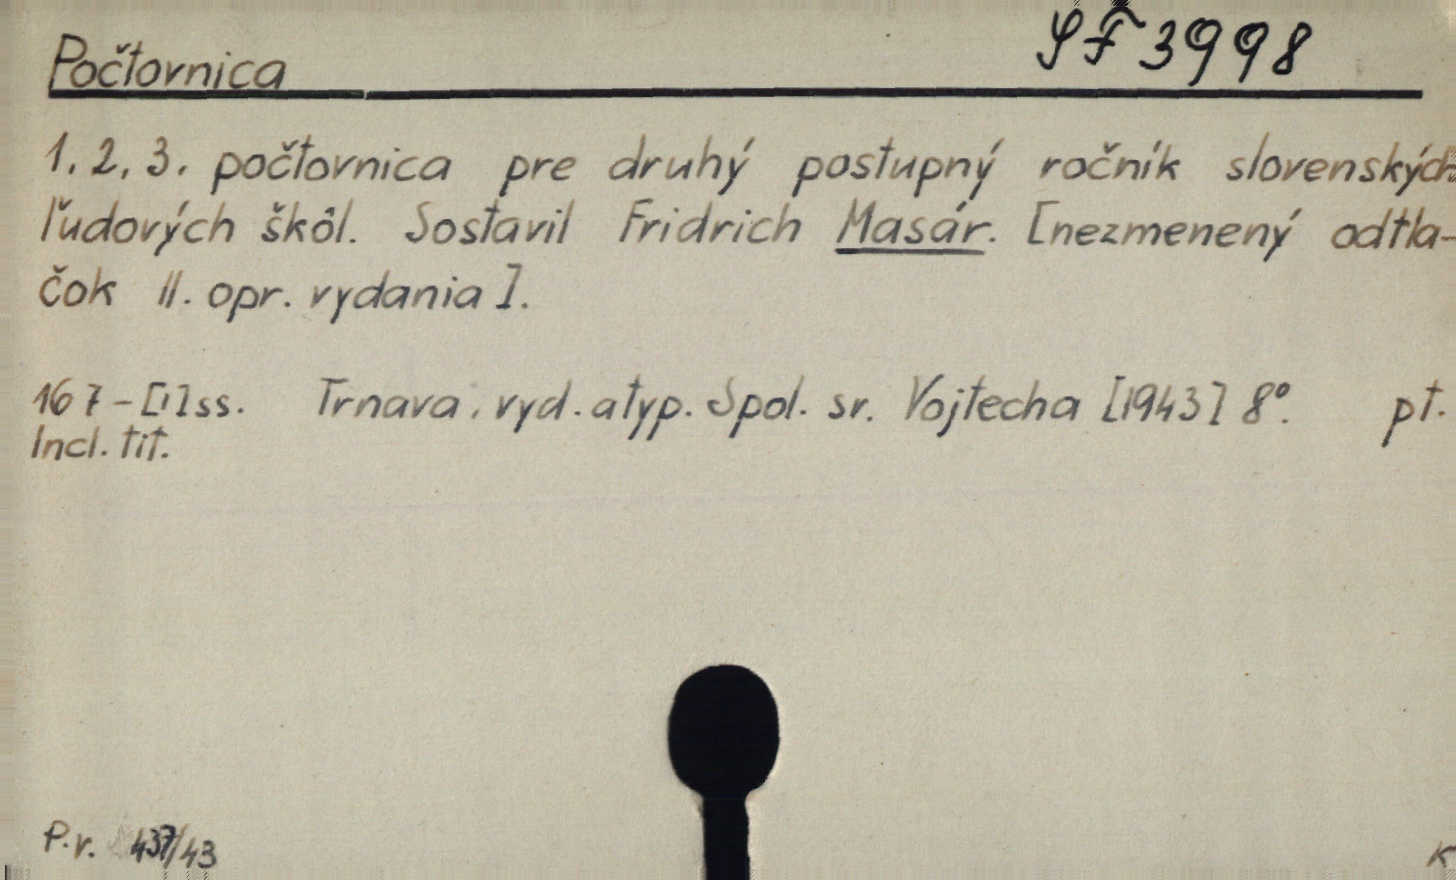 Počtovnica
SF 3998
1. 2. 3. počtovnica pre druhý postupný ročník slovenských
ľudových škôl. Sostavil Fridrich Masár. [nezmenený odtla-
čok II. opr. vydania].
167-[1]ss. Trnava. vyd. a typ. Spol. sv. Vojtecha [1943] 8°. pt.
Incl. tit.
P.v. 437/43
K